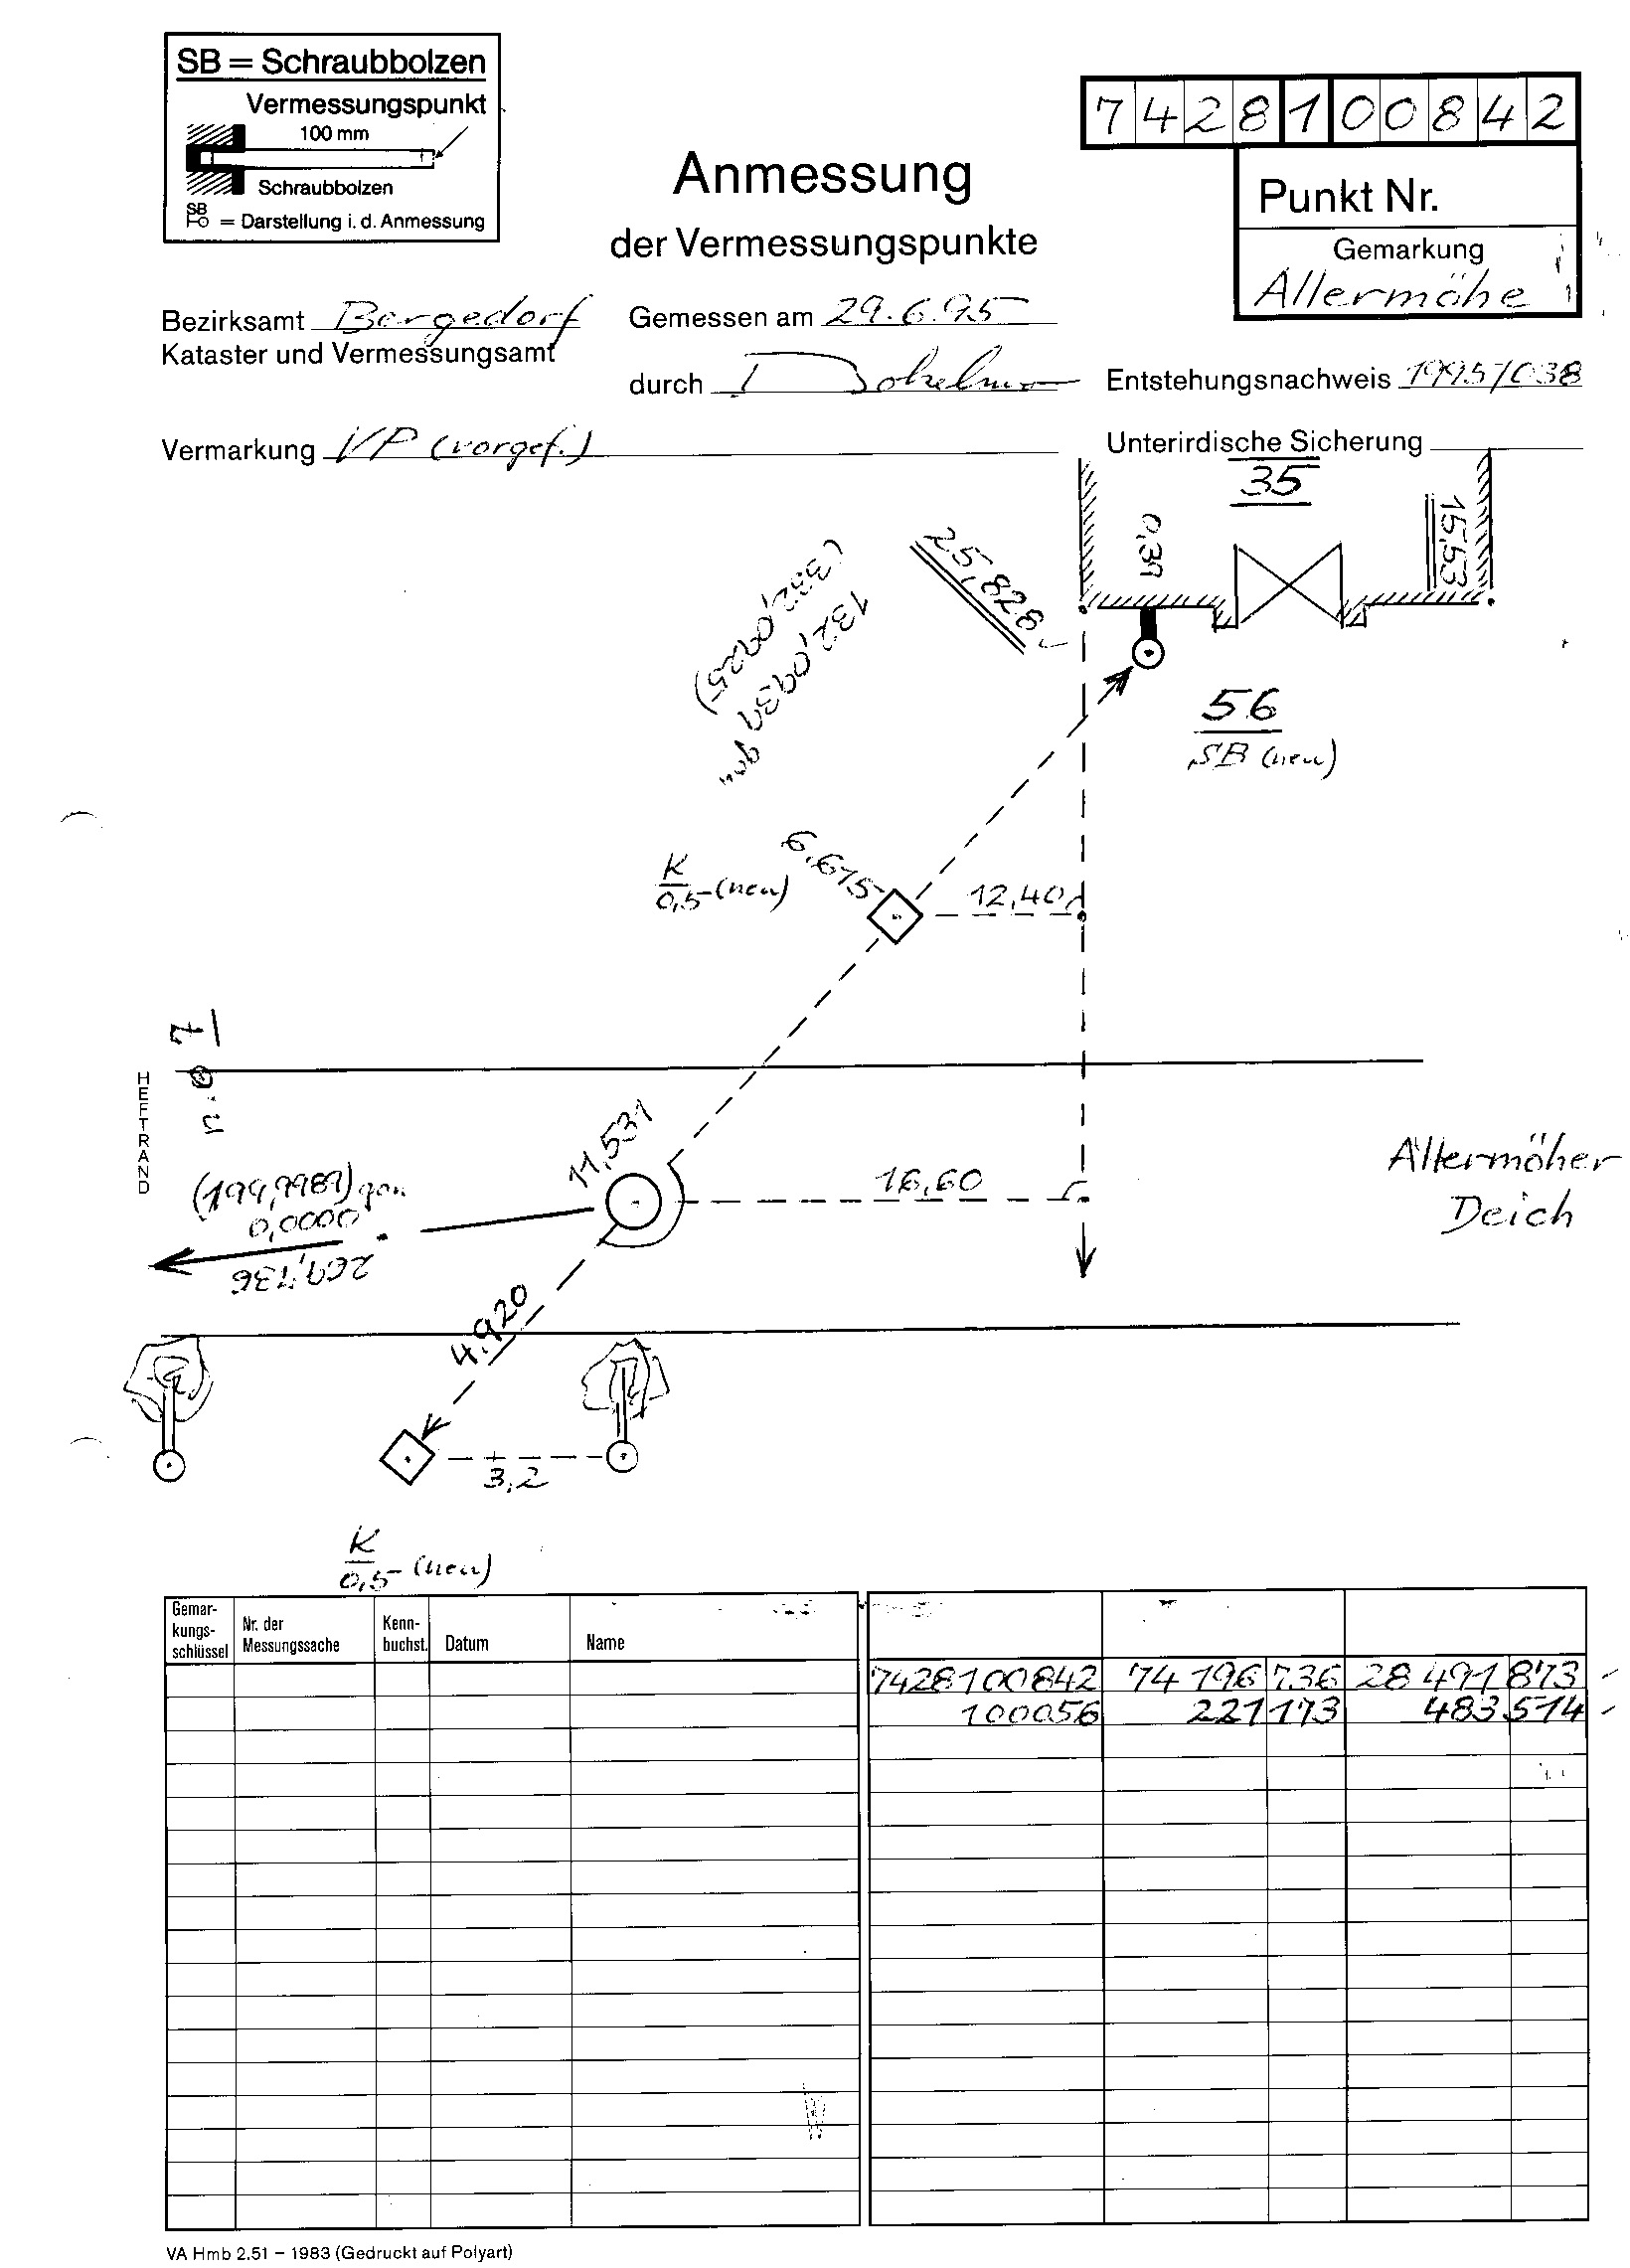 SB = Schraubbolzen
Vermessungspunkt
100 mm
Schraubbolzen
SB
= Darstellung i. d. Anmessung
Anmessung
der Vermessungspunkte
7428100842
Punkt Nr.
Gemarkung
Allermöhe
Bezirksamt Bergedorf
Kataster und Vermessungsamt
Gemessen am 29.6.95
durch
Entstehungsnachweis 1995/038
Vermarkung VP (vorgef.)
Unterirdische Sicherung
35
15,53
0,31
25,828
(332,0925)
132,0931 gon
56
SB (neu)
6,615
K
0,5 (neu)
12,40
7
n. 0.
HEFTRAND
11,531
16,60
Allermöher
Deich
(199,9989) gon
0,0000
269,736
4,920
3,2
K
0,5 (neu)
Gemar-
kungs-
schlüssel
Nr. der
Messungssache
Kenn-
buchst.
Datum
Name
7428100842 74 196 736 28 491 873
100056 221 173 483 514
VA Hmb 2.51 – 1983 (Gedruckt auf Polyart)